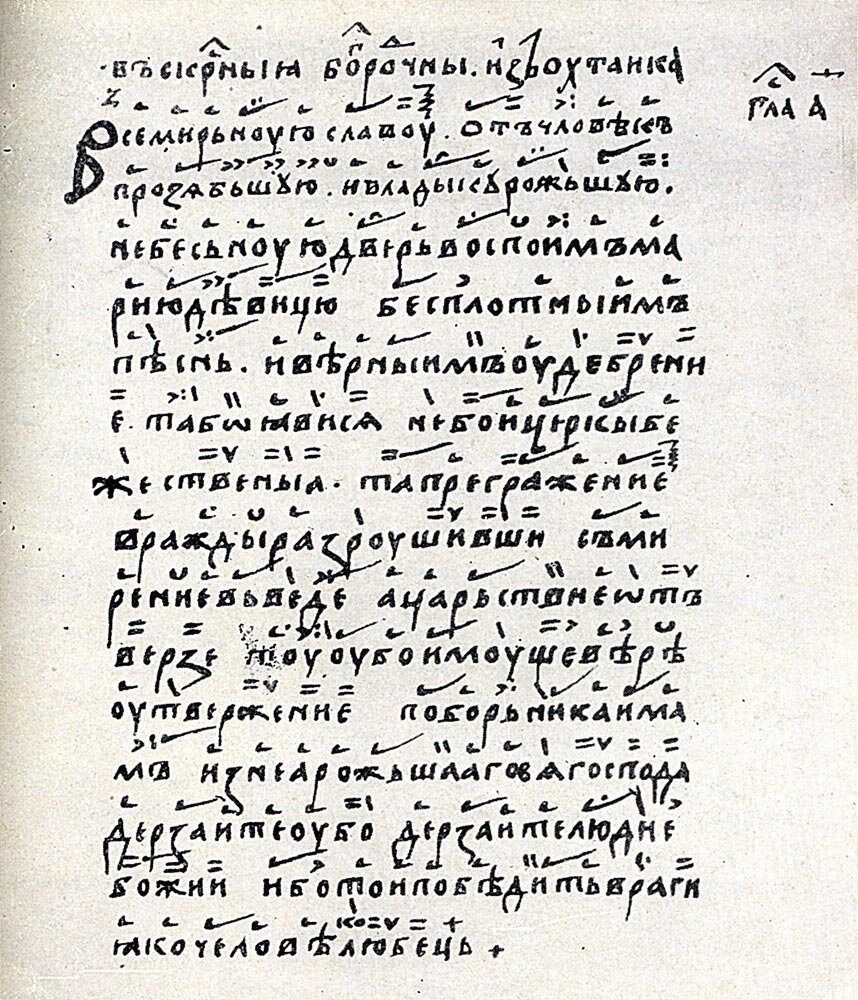 въскр҃ныꙗ бг҃ородчны. изъ охтаика
гла а҃
Всемирьноую славоу. отъ чловѣкъ
прозѧбъшꙋю. и владыкꙋ рожьшꙋю.
небесьноую дверь воспоимъ ма
рию дѣвицю бесплотныимъ
пѣснь. и вѣрныимъ оудебрени
е. та бо ꙗвисѧ небо и црк҃ы бе
жественыꙗ. та прегражение
вражды разроушивши съми
рение въведе а царьствие ѿтъ
верзе тоу оубо имоуще вѣрѣ
оутвержение поборьника има
мъ из неꙗ рожьшааговѧ господа
дерзаите оубо дерзаите людие
божии ибо тои побѣдить враги
ꙗко человѣлюбець +